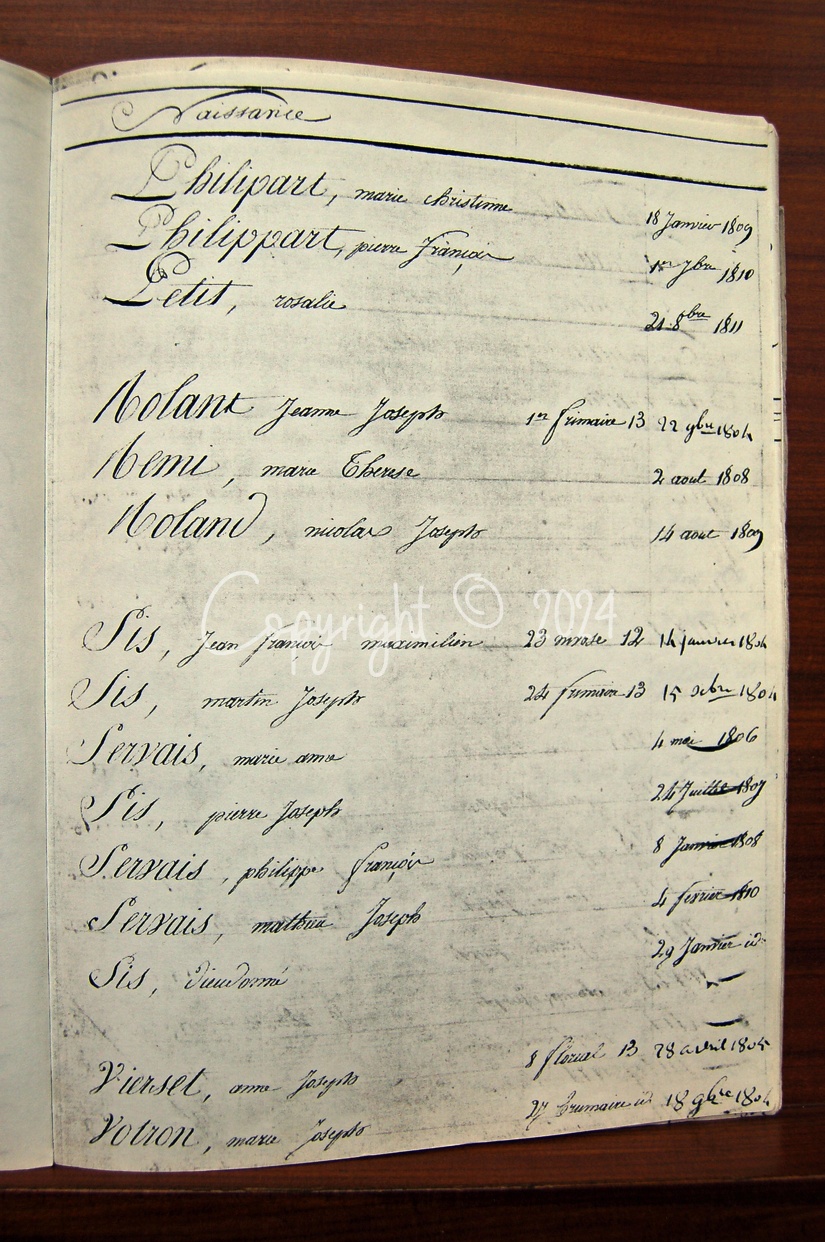 Naissance
Philipart, marie christinne 18 Janvier 1809
Philippart, pierre françois 1er 7bre 1810
Petit, rosalie 21 8bre 1811
Rolant Jeanne Joseph 1er frimaire 13 22 9bre 1804
Remi, marie Therese 2 aout 1808
Roland, nicolas Joseph 14 aout 1809
Copyright © 2024
Sis, Jean françois maximilien 23 nivose 12 14 janvier 1804
Sis, martin Joseph 24 frimaire 13 15 1804
Servais, marie anne 4 mai 1806
Sis, pierre Joseph 24 Juillet 1807
Servais, philippe françois 8 Janvier 1808
Servais, mathieu Joseph 4 fevrier 1810
Sis, dieudonné 29 Janvier id.
Vierset, anne Joseph 8 floreal 13 28 avril 1805
Votron, marie Joseph 27 brumaire id 18 9bre 1804